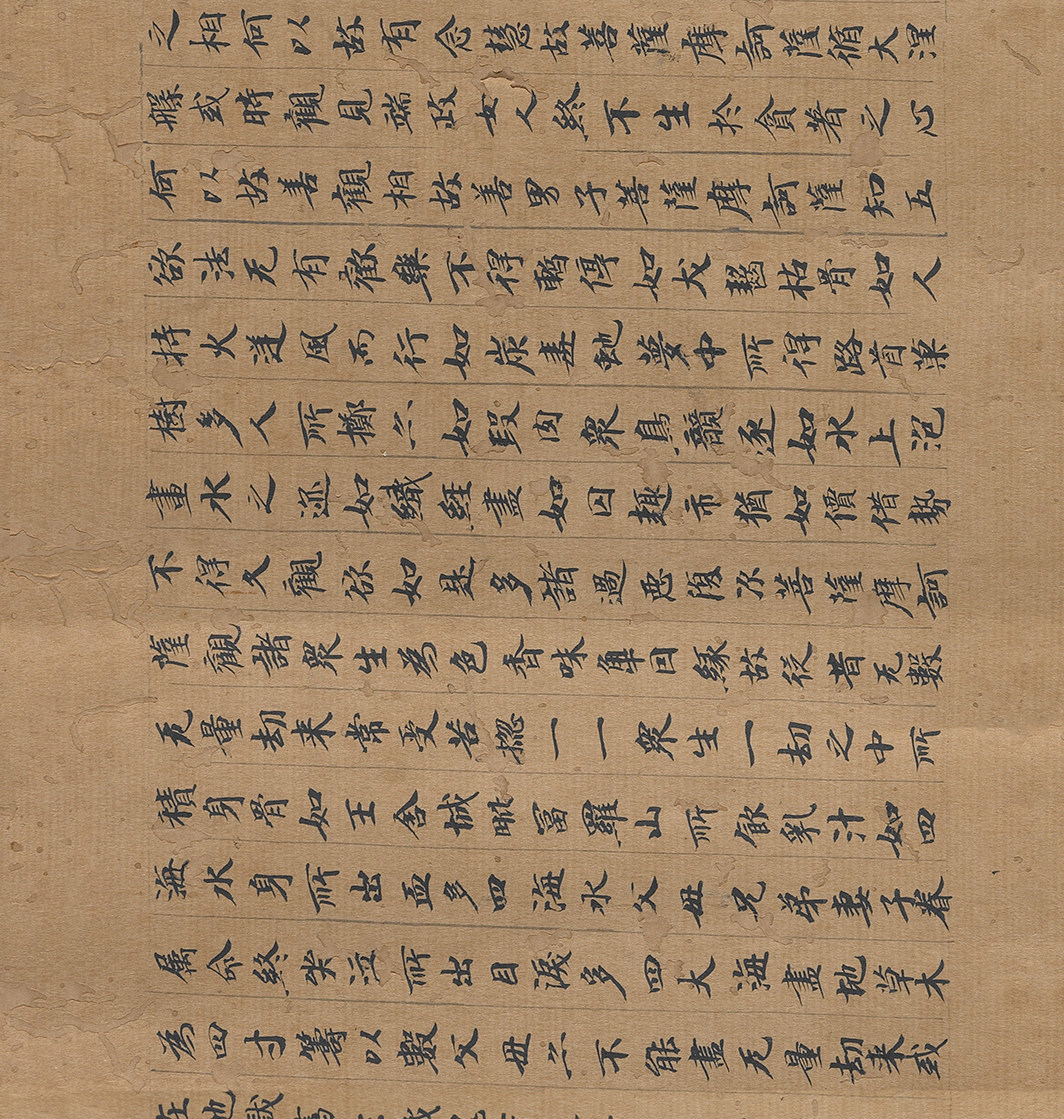 之相何以故有念慧故菩薩摩訶薩脩大涅
槃或時觀見端政女人終不生於貪著之心
何以故善觀相故善男子菩薩摩訶薩知五
欲法无有歡樂不得暫停如犬齧枯骨如人
持火逆風而行如炭毒蛇夢中所得路首菓
樹多人所擲亦如段肉衆鳥競逐如水上泡
畫水之迹如織經盡如囚趣市猶如假借勢
不得久觀欲如是多諸過惡復次菩薩摩訶
薩觀諸衆生為色香味觸因緣故從昔无數
无量劫来常受苦惱一一衆生一劫之中所
積身骨如王舍城毗富羅山所飲乳汁如四
海水身所出血多四海水父母兄弟妻子眷
屬命終哭泣所出目淚多四大海盡地草木
為四寸籌以數父母亦不能盡无量劫来或
在地獄